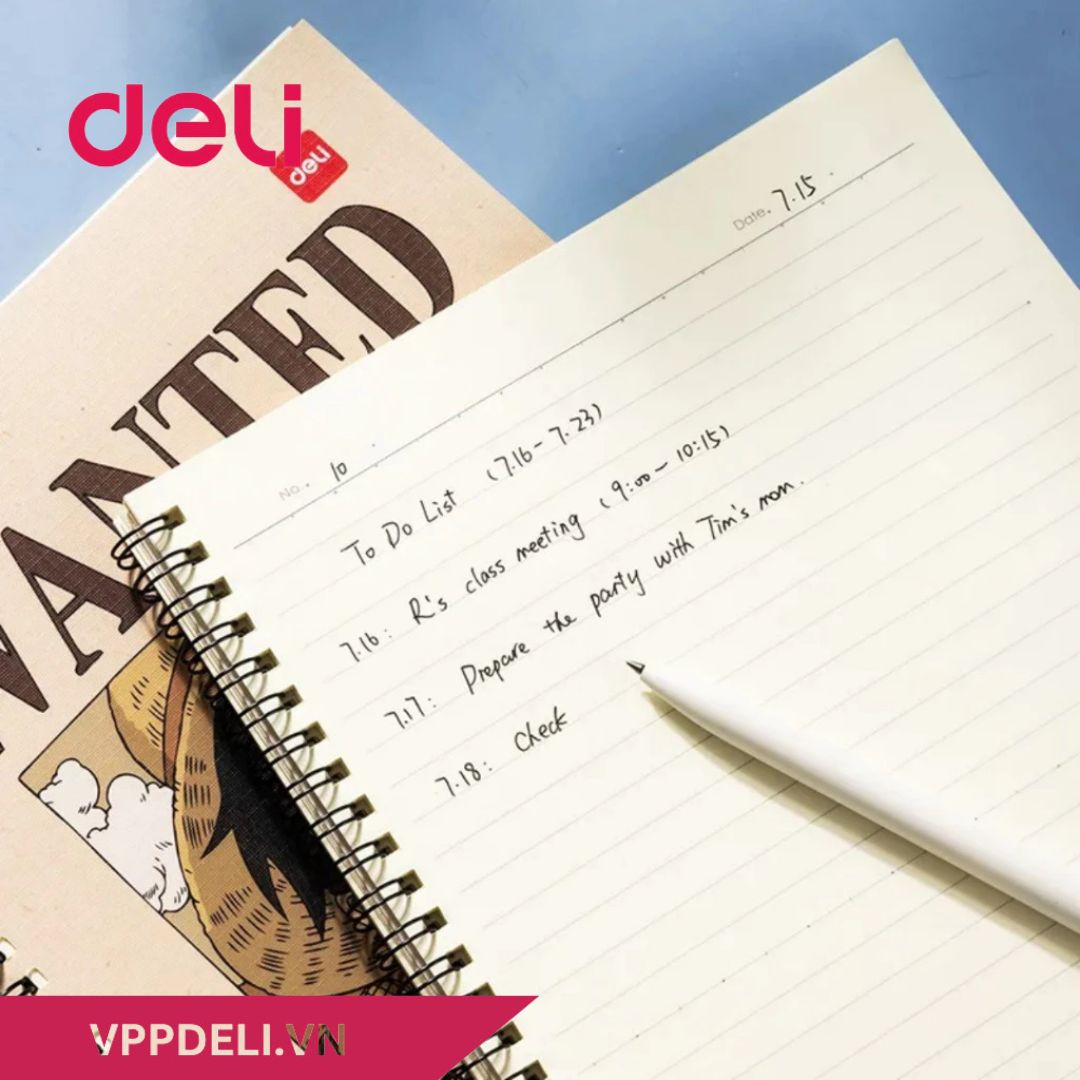 deli
deli
WANTED
Date. 7.15.
No. 10
To Do List (7.16 - 7.23)
7.16: R's class meeting (9:00 - 10:15)
7.17: Prepare the party with Tim's mom.
7.18: Check
VPPDELI.VN